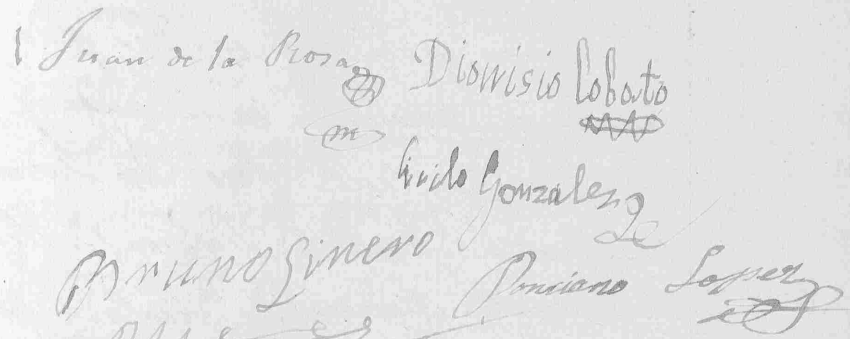 Juan de la Rosa Dionisio Lobato
Gonzales
Bruno Ginero Ponciano Lopez